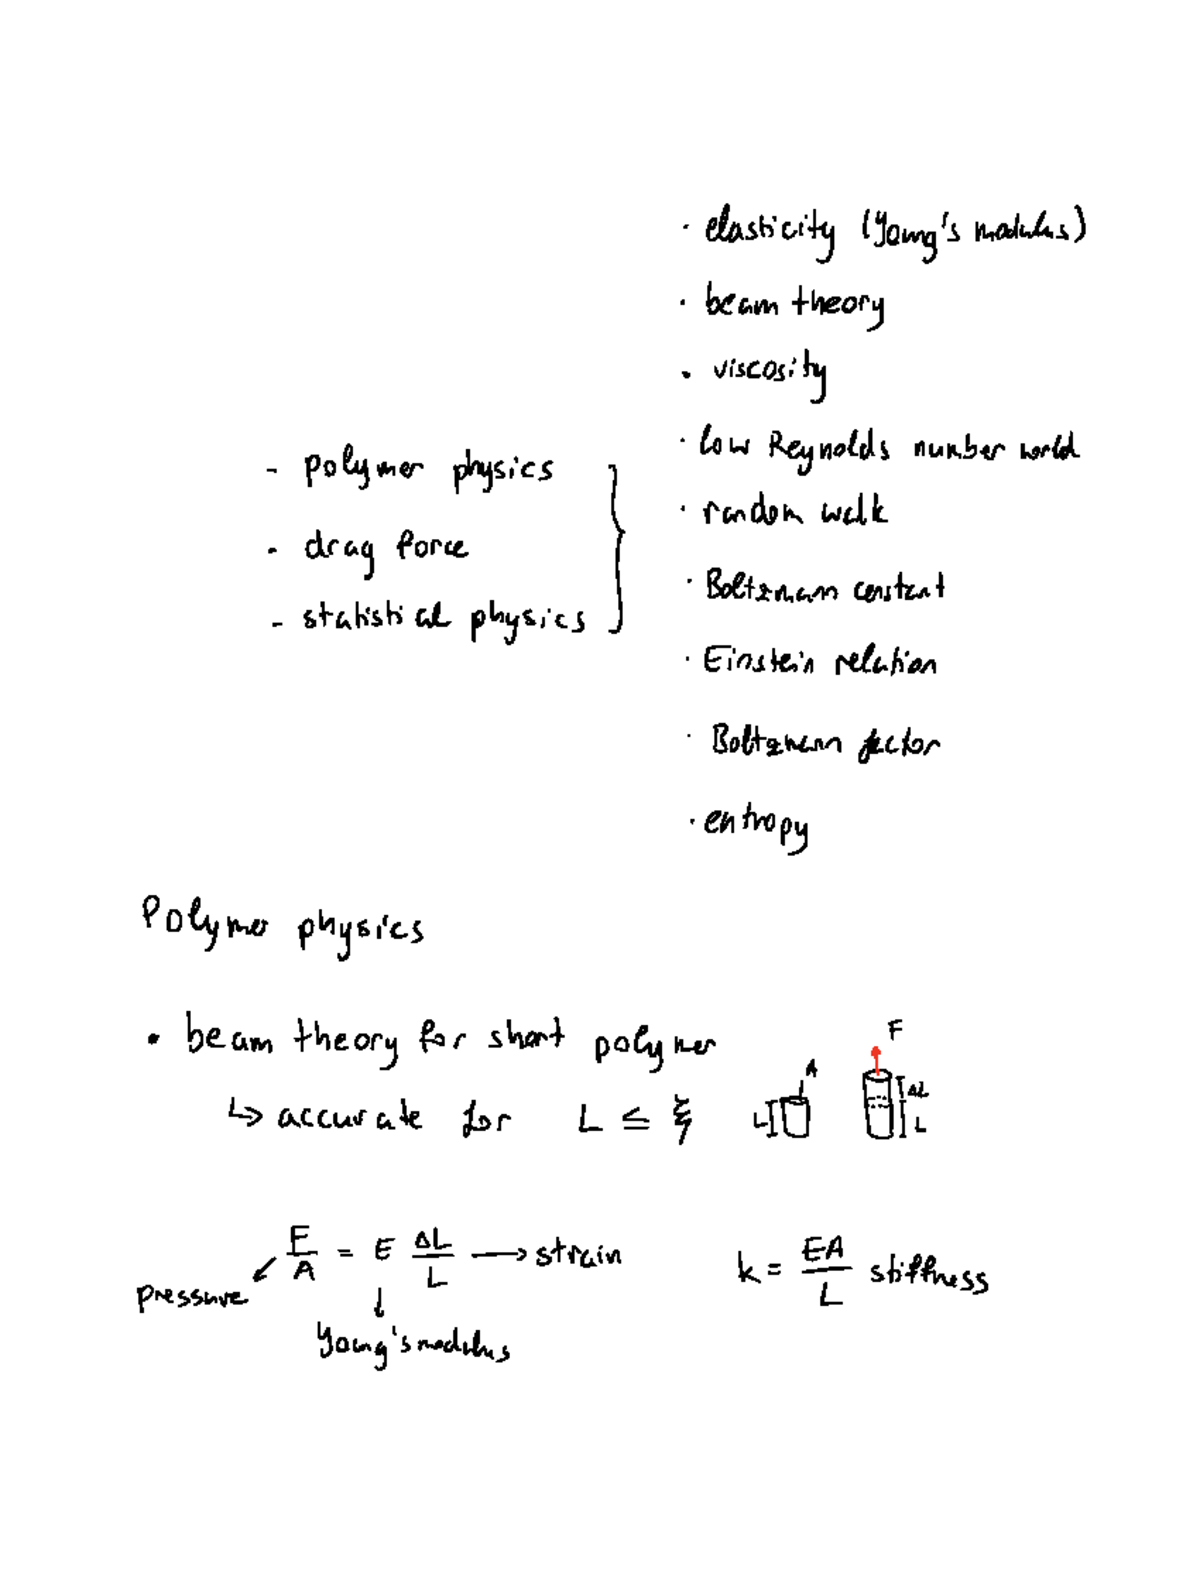 · elasticity (Young's modulus)
· beam theory
· viscosity
· low Reynolds number world
- polymer physics
· random walk
- drag force
· Boltzmann constant
- statistical physics
· Einstein relation
· Boltzmann factor
· entropy
Polymer physics
• beam theory for short polymer
↳ accurate for L ≤ ξ
A
L
F
ΔL
L
F/A = E ΔL/L → strain
pressure
Young's modulus
k = EA/L stiffness